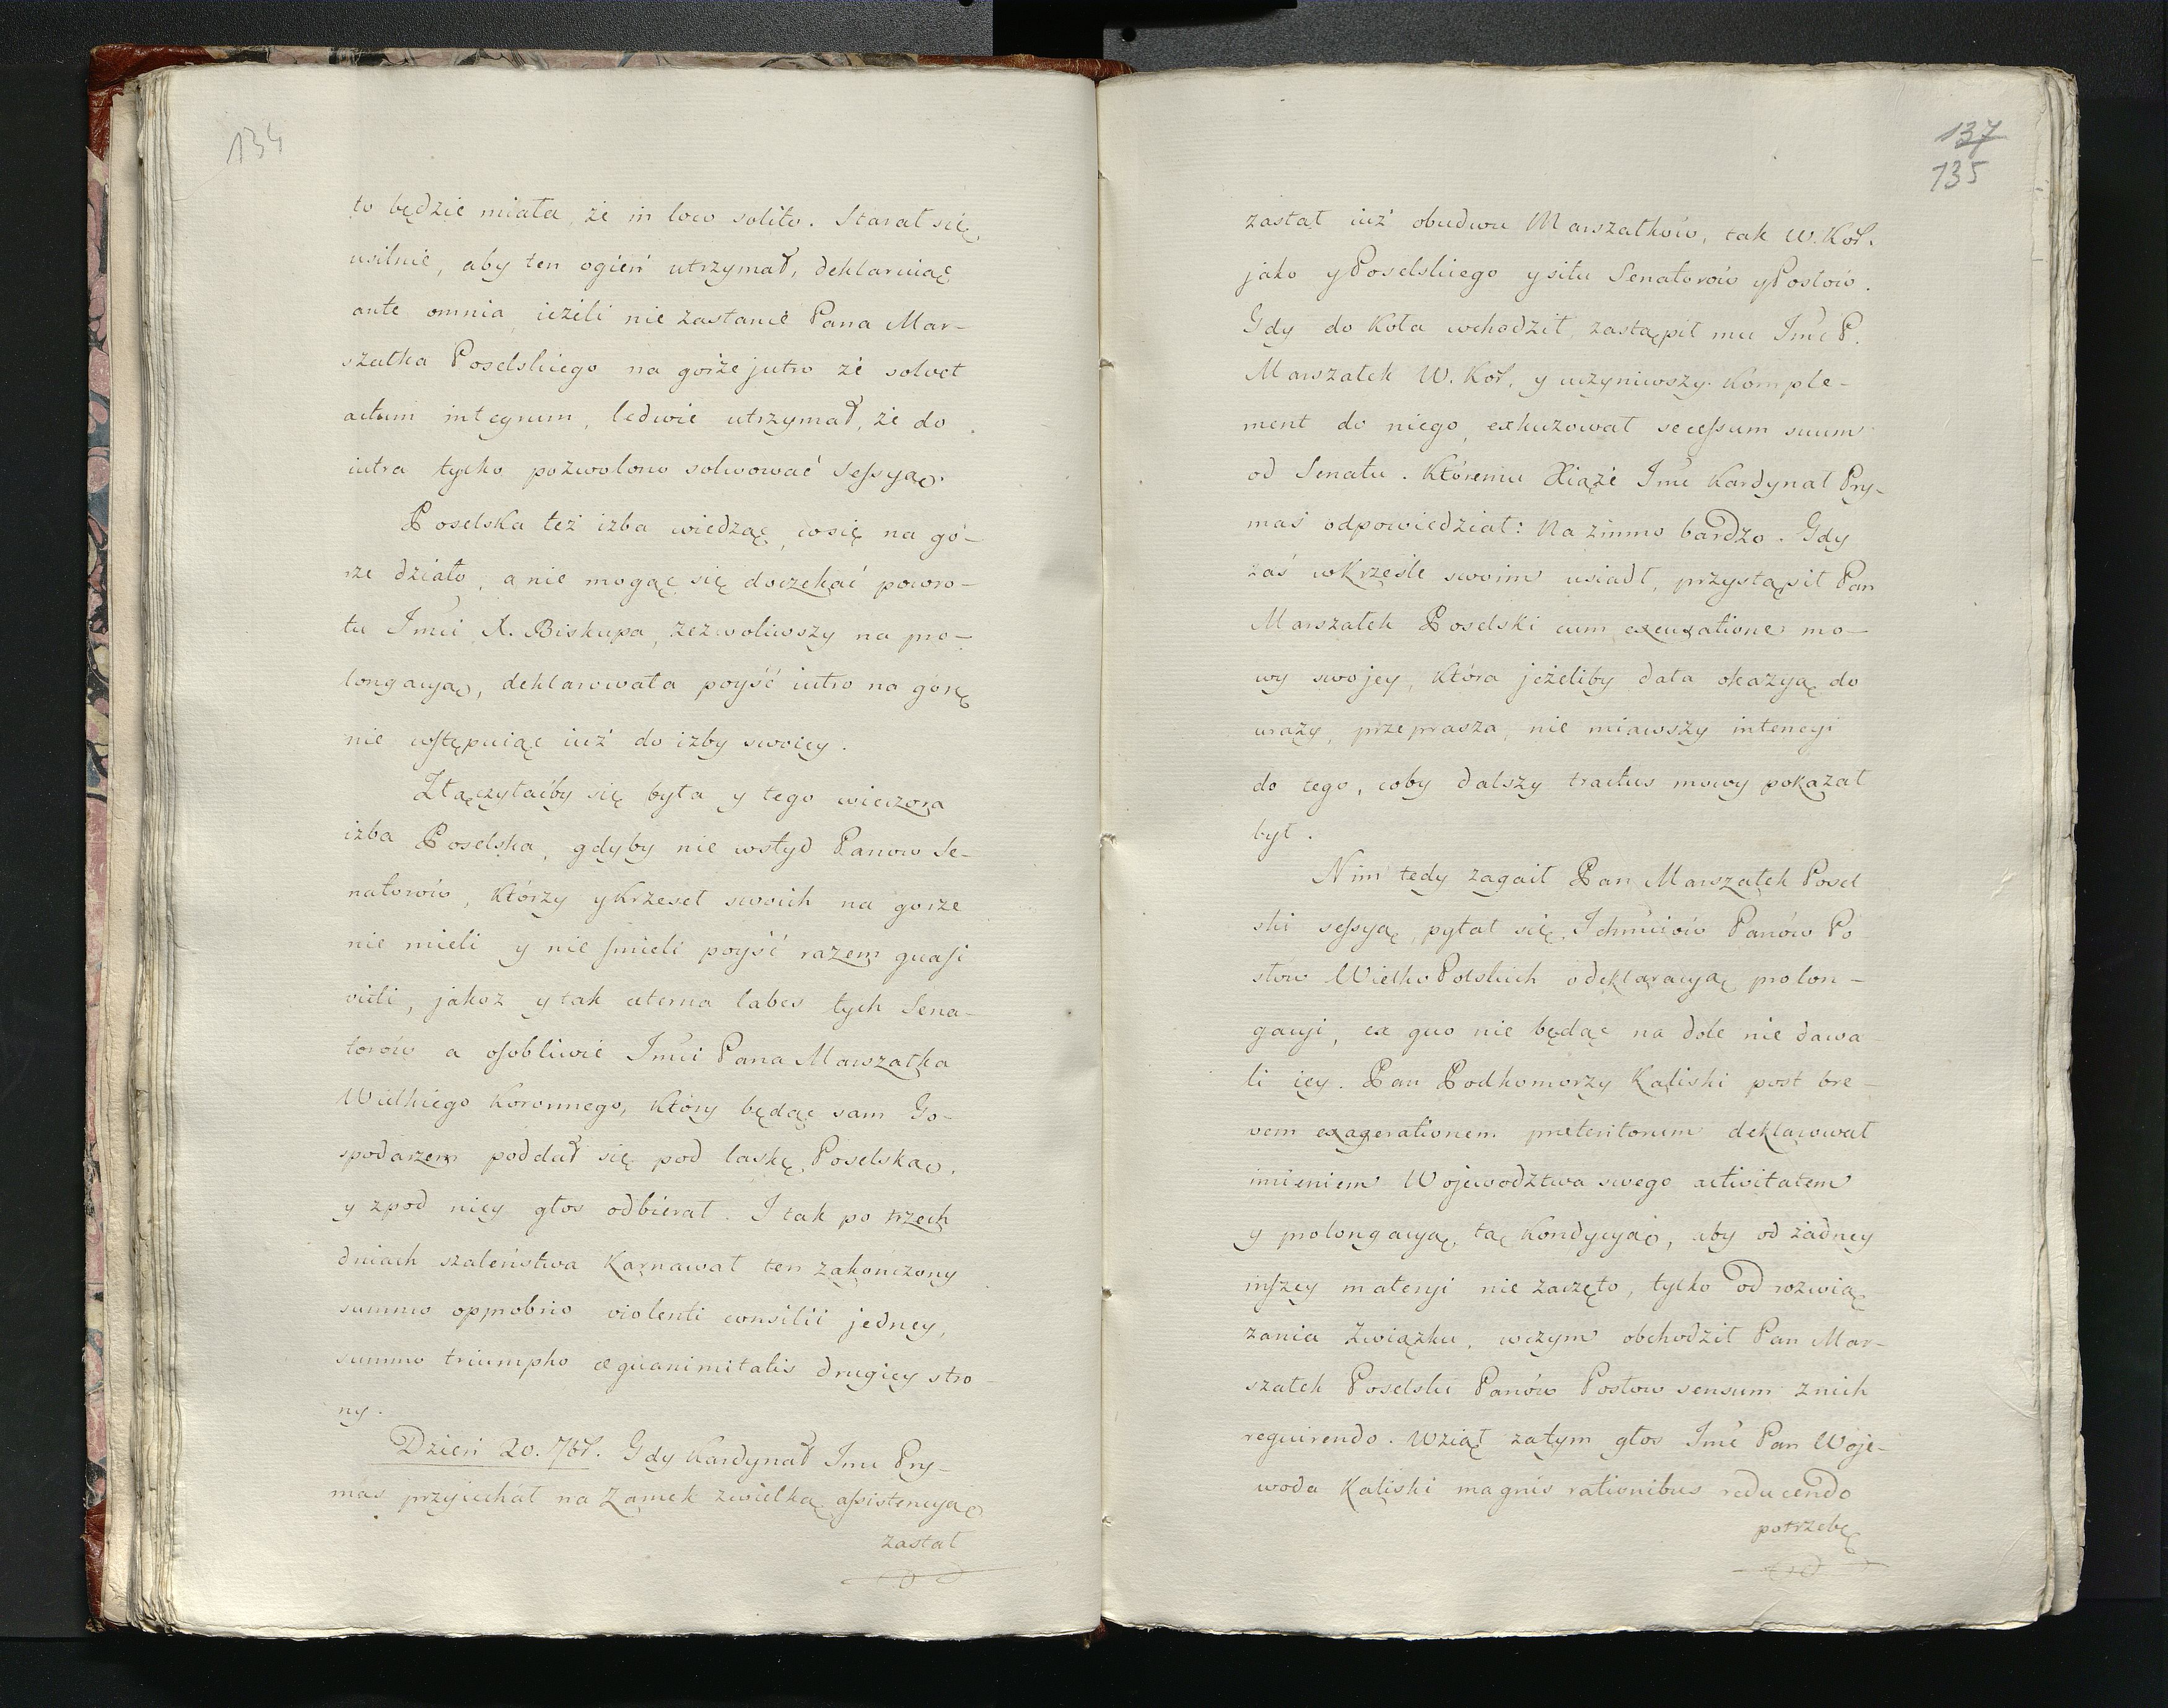 134
to będzie miała, że in loco solito. Starał się,
usilnie, aby ten ogień utrzymał, deklaruiąc
ante omnia, ieżeli nie zastanie Pana Mar-
szałka Poselskiego na górze jutro że solvet
actum integrum, ledwie utrzymał, że do
iutra tylko pozwolono solwować sessyą.
Poselska też izba wiedząc, co się na gó-
rze działo, a nie mogąc się doczekać powro-
tu Imći X. Biskupa, zezwoliwszy na pro-
longacyą, deklarowała poyść iutro na górę
nie wstępuiąc iuż do izby swoiey.
Złączyłaćby się była y tego wieczora
izba Poselska, gdyby nie wstyd Panow Se-
natorów, którzy y krzeseł swoich na gorze
nie mieli y nie śmieli poyść razem quasi
victi, jakoż y tak æterna labes tych Sena-
torów a osobliwie Imći Pana Marszałka
Wielkiego Koronnego, który będąc sam Go-
spodarzem poddał się pod laskę Poselską,
y zpod niey głos odbierał. I tak po trzech
dniach szaleństwa Karnawał ten zakończony
summo opprobrio violenti consilii jedney,
summo triumpho æquanimitatis drugiey stro-
ny.
Dzień 20. 7bř. Gdy Kardynał Imć Pry-
mas przyiechał na Zamek zwielką assistencyą
zastał
137
135
zastał iuż obudwu Marszałków, tak W. Kor.
jako y Poselskiego y siłu Senatorów y Posłów.
Gdy do Koła wchodził, zastąpił mu Imć P.
Marszałek W. Kor. y uczyniwszy Komple-
ment do niego, exkuzował secessum suum
od Senatu. Któremu Xiąże Imć Kardynał Pry-
mas odpowiedział: Na zimno bardzo. Gdy
zaś w Krześle swoim usiadł, przystąpił Pan
Marszałek Poselski cum excusatione mo-
wy swojey, która jeżeliby dała okazyą do
urazy, przeprasza, nie miawszy intencyi
do tego, coby dalszy tractus mowy pokazał
był.
Nim tedy zagaił Pan Marszałek Posel
ski sessyą, pytał się Ichmciów Panów Po
słow Wielko Polskich o deklaracyą prolon-
gacyi, ex quo nie będąc na dole nie dawa-
li iey. Pan Podkomorzy Kaliski post bre-
vem exagerationem preteritorum deklarował
imieniem Województwa swego activitatem
y prolongacyą, tą kondycyą, aby od żadney
inszey materyi nie zaczęto, tylko od rozwią
zania Związku, wczym obchodził Pan Mar-
szałek Poselski Panów Posłow sensum znich
requirendo. Wziął zatym głos Imć Pan Woje-
woda Kaliski magnis rationibus reducendo
potrzebę